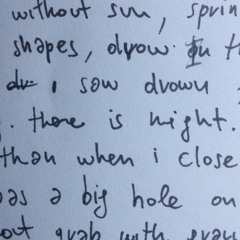 without sun, sprin
shapes, drow in th
i saw drown
. there is night.
than when i close
as a big hole on
out grab with